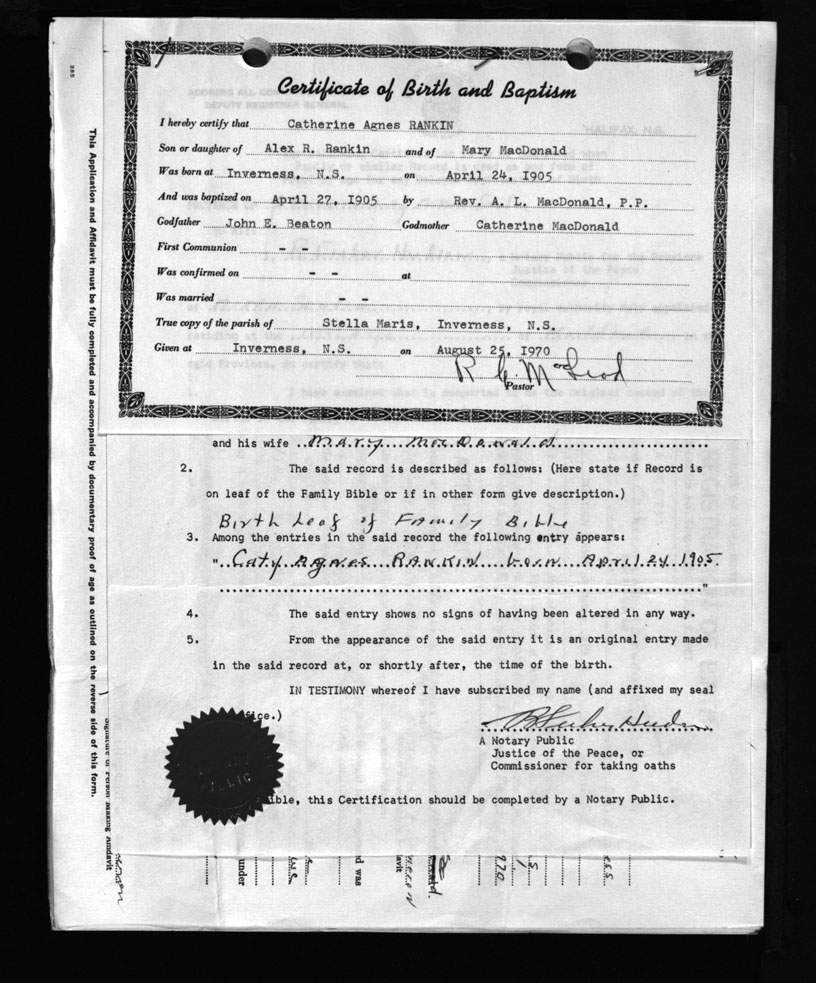 Certificate of Birth and Baptism
I hereby certify that Catherine Agnes RANKIN
Son or daughter of Alex R. Rankin and of Mary MacDonald
Was born at Inverness, N.S. on April 24, I905
And was baptized on April 27, I905 by Rev. A. L. MacDonald, P.P.
Godfather John E. Beaton Godmother Catherine MacDonald
First Communion - -
Was confirmed on - - at
Was married - -
True copy of the parish of Stella Maris, Inverness, N.S.
Given at Inverness, N.S. on August 25, I970
R C McLeod
Pastor
and his wife Mary MacDonald
2. The said record is described as follows: (Here state if Record is
on leaf of the Family Bible or if in other form give description.)
Birth Leaf of Family Bible
3. Among the entries in the said record the following entry appears:
"Caty Agnes RANKIN born April 24 1905
"
4. The said entry shows no signs of having been altered in any way.
5. From the appearance of the said entry it is an original entry made
in the said record at, or shortly after, the time of the birth.
IN TESTIMONY whereof I have subscribed my name (and affixed my seal
fice.)
A Notary Public
Justice of the Peace, or
Commissioner for taking oaths
ible, this Certification should be completed by a Notary Public.
This Application and Affidavit must be fully completed and accompanied by documentary proof of age as outlined on the reverse side of this form.
under
d was